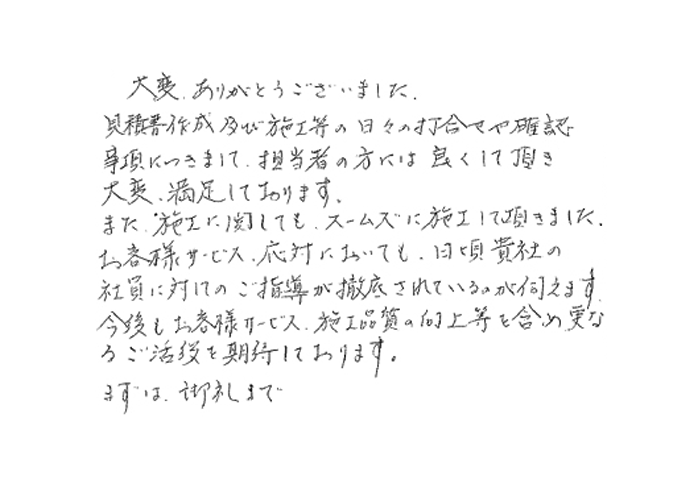 大変、ありがとうございました。
見積書作成及び施工等の日々の打合せや確認
事項につきまして、担当者の方には良くして頂き
大変、満足しております。
また、施工に関しても、スームズに施工して頂きました。
お客様サービス、応対においても、日頃貴社の
社員に対けのご指導が撤底されているのが伺えます。
今後もお客様サービス、施工品質の向上等を含め更な
るご活役を期待しております。
まずは、御礼まで